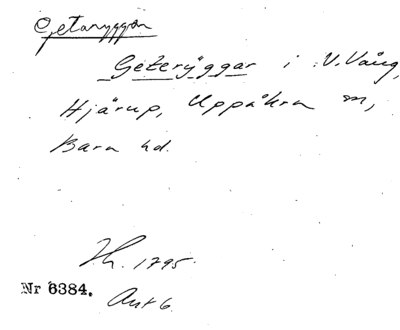 Getaryggen
Geterÿggar i V. Vång,
Hjärup, Uppåkra m,
Bara hd.
Th. 1795.
Nr 6384. Akt 6